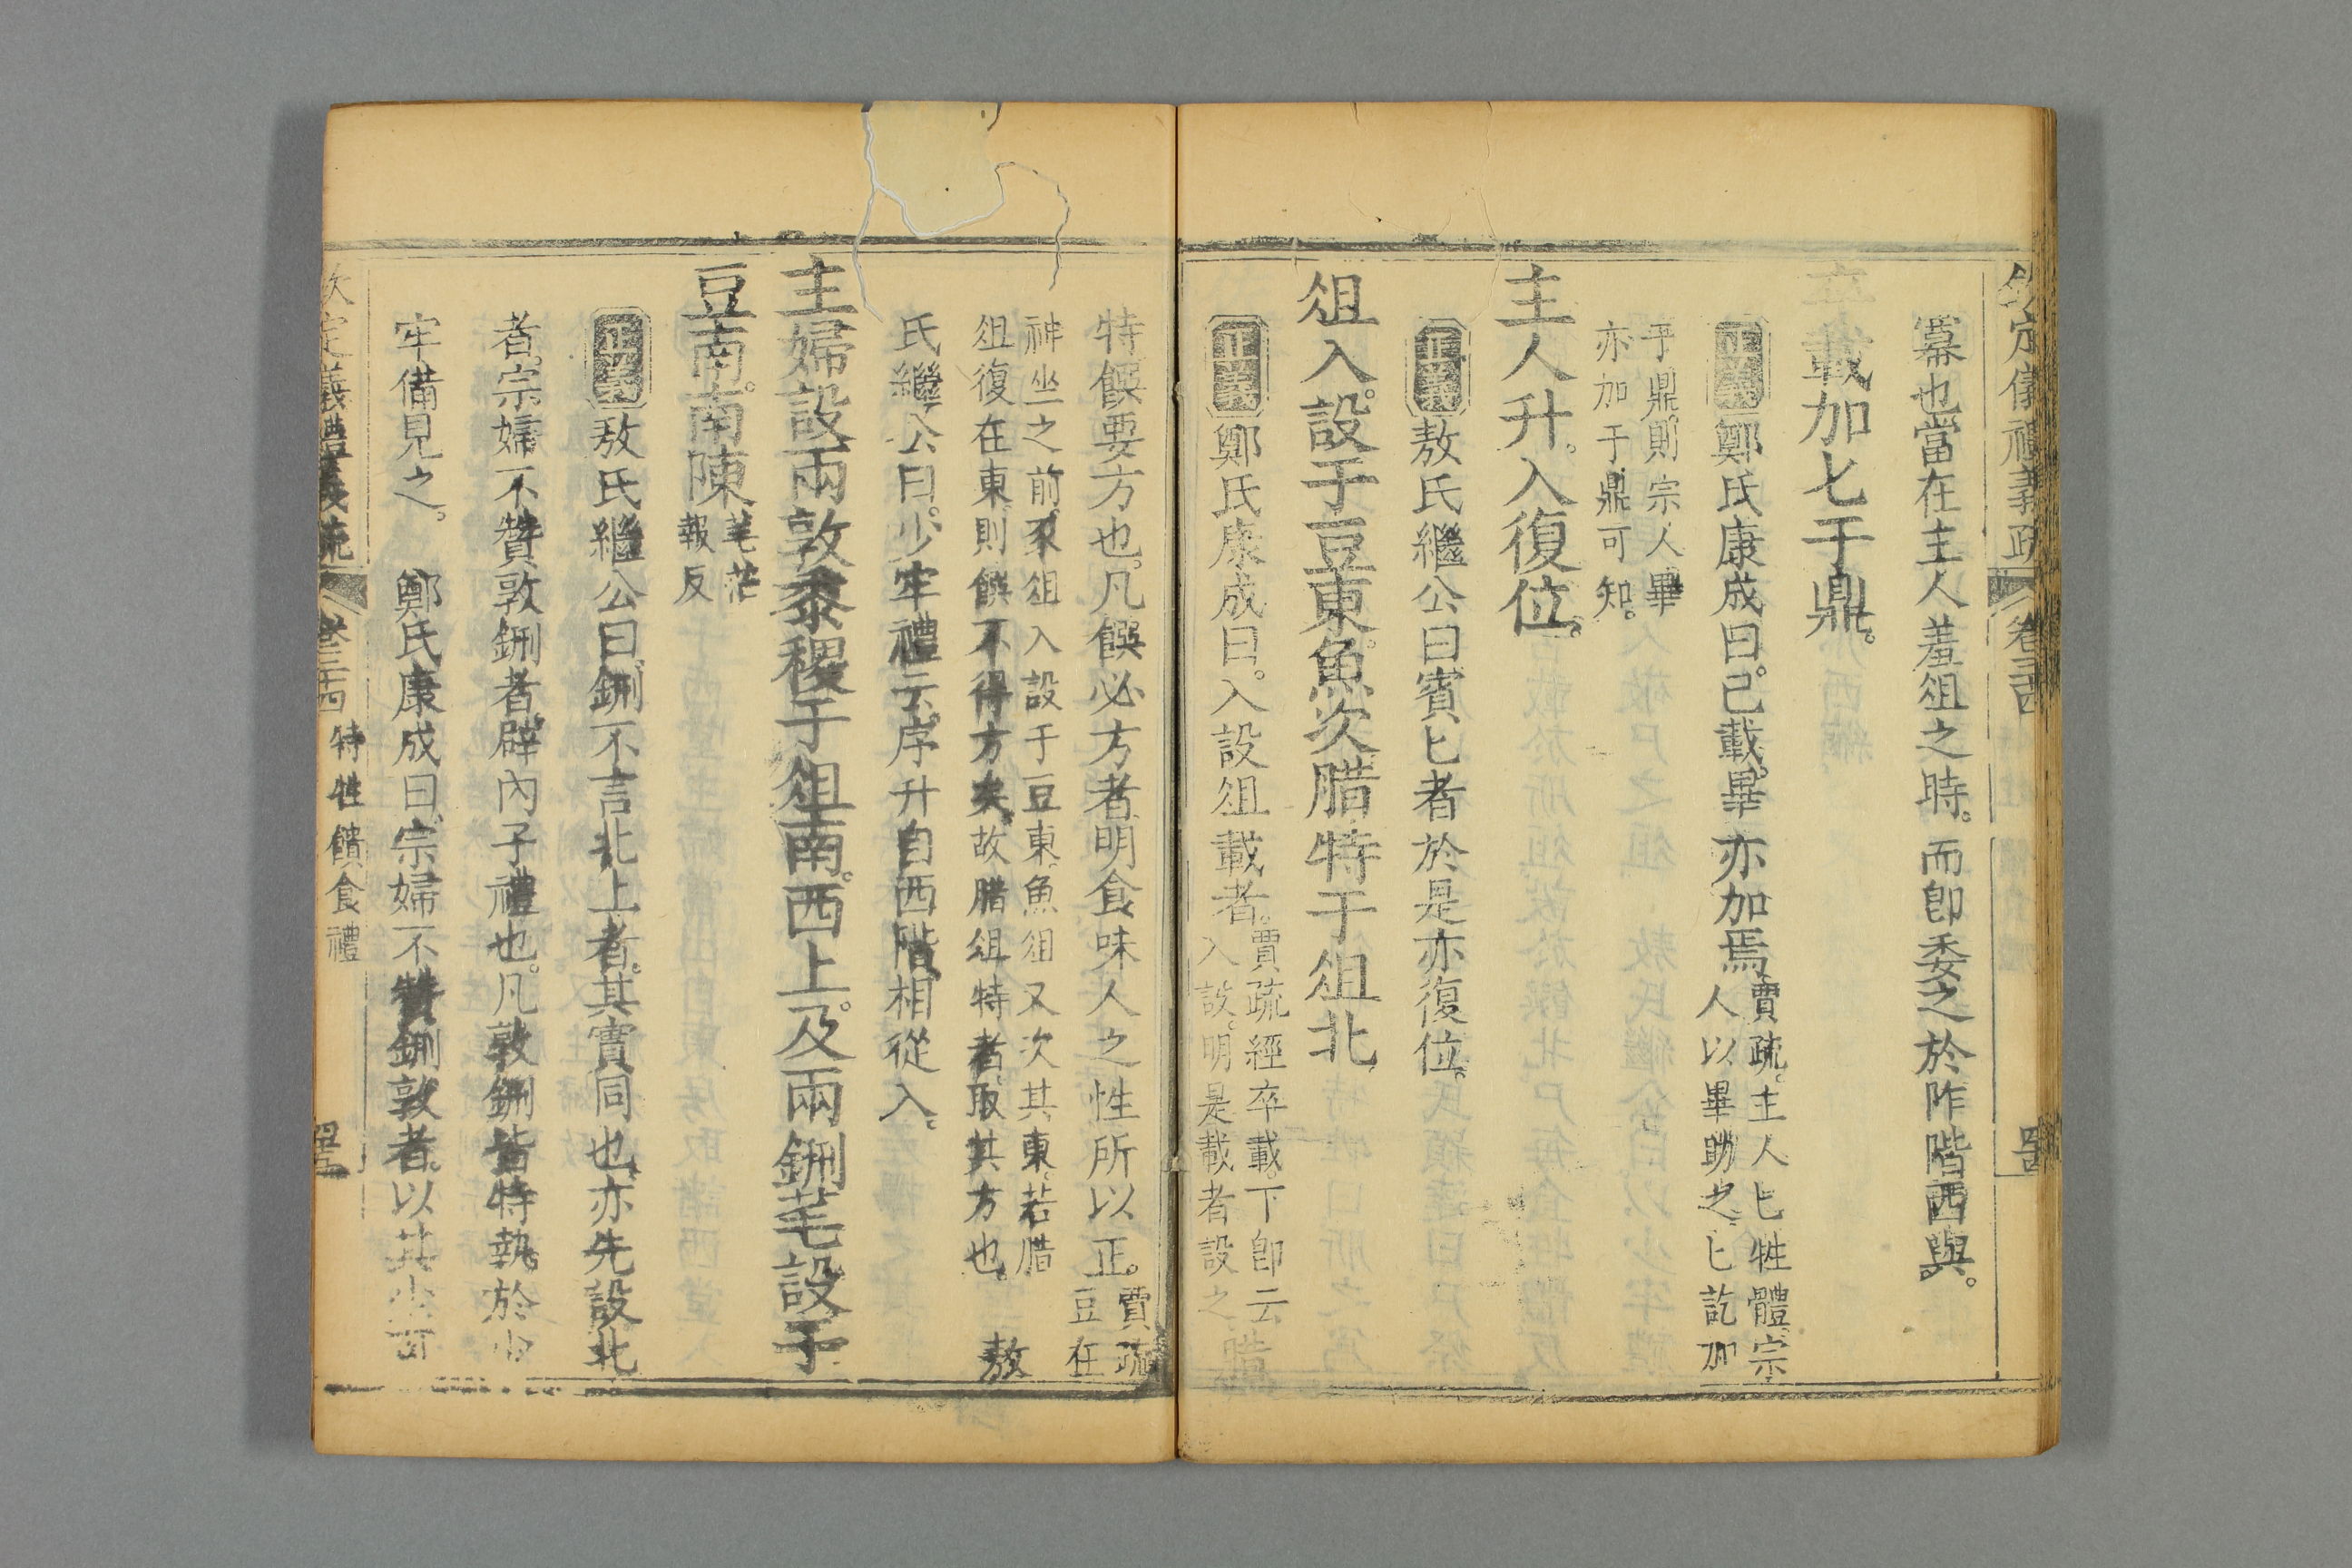 欽定儀禮義疏 卷三十四
冪也當在主人羞俎之時。而卽委之於阼階西與。
卒載加匕于鼎。
正義鄭氏康成曰。已載。畢亦加焉。
賈疏。主人匕牲體。宗
人以畢助之。匕訖加
乎鼎。則宗人畢
亦加于鼎可知。
主人升。入復位。
正義敖氏繼公曰賓匕者於是亦復位。
俎入。設于豆東。魚次腊特于俎北
正義鄭氏康成曰。入設俎載者。
賈疏經卒載。下卽云
入設。明是載者設之
腊
特饌要方也。凡饌必方者。明食味人之性所以正。
賈疏
豆在
神坐之前豕俎入設于豆東。魚俎又次其東。若腊
俎復在東。則饌不得方矣。故腊俎特者。取其方也。
敖
氏繼公曰。少牢禮云。序升自西階。相從入。
主婦設兩敦黍稷于俎南。西上。及兩鉶芼設于
豆南。南陳
芼茫
報反
正義敖氏繼公曰。鉶不言北上者。其實同也。亦先設北
者。宗婦不贊敦鉶者。辟內子禮也。凡敦鉶皆特執。於少
牢備見之。 鄭氏康成曰。宗婦不贊鉶敦者。以其少可
欽定儀禮義疏 卷三十四 特牲饋食禮